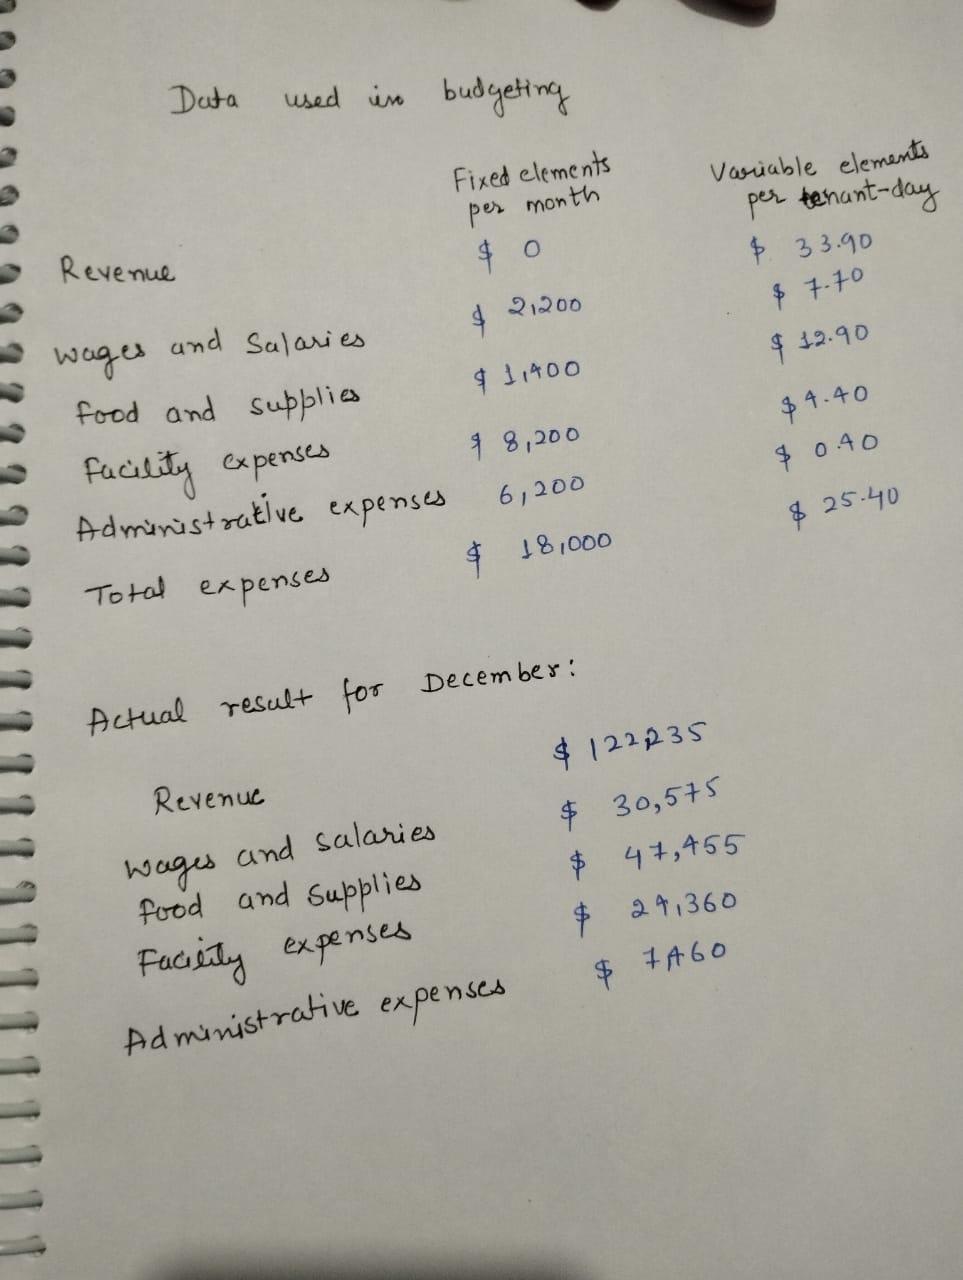 Data used in budgeting
Fixed elements Variable elements
per month per tenant-day
Revenue $ 0 $ 33.90
Wages and Salaries $ 2,200 $ 7.70
food and supplies $ 1,400 $ 12.90
facility expenses $ 8,200 $ 4.40
Administrative expenses 6,200 $ 0.40
Total expenses $ 18,000 $ 25.40
Actual result for December:
Revenue $ 122,235
Wages and salaries $ 30,575
food and Supplies $ 47,455
Facility expenses $ 24,360
Administrative expenses $ 7,460